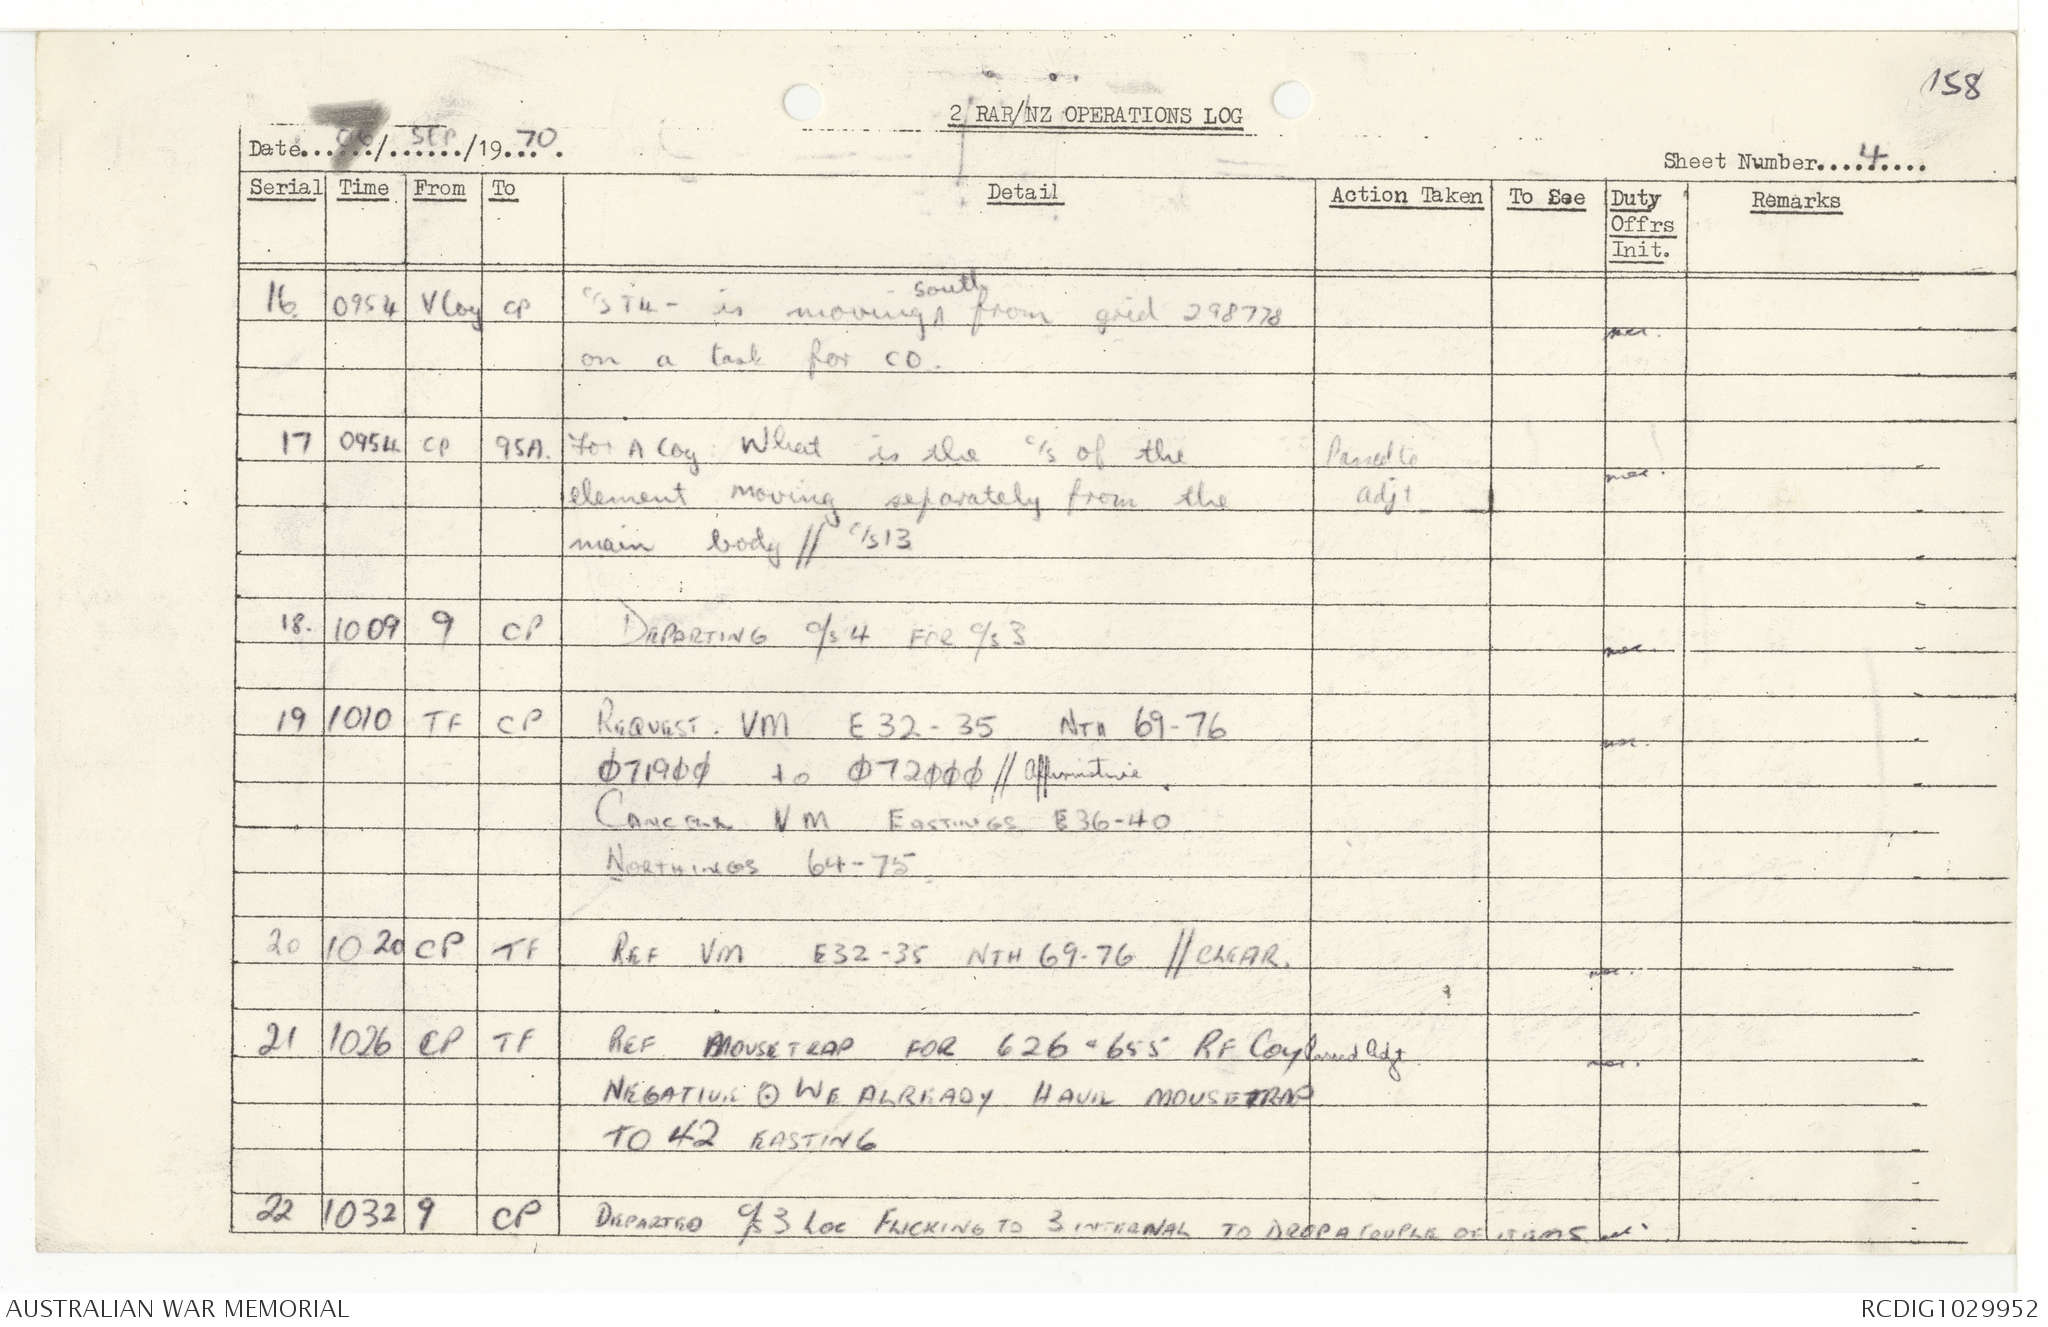 158
2 RAR/NZ OPERATIONS LOG
Date 7 / SEP /1970.
Sheet Number....4....
Serial Time From To Detail Action Taken To See Duty Offrs Init. Remarks
16. 0954 V Coy CP c/s T4 - is moving south from grid 298778
on a task for CO.
17 0954 CP 95A. For A Coy. What is the c/s of the Passed to
element moving separately from the adjt
main body // c/s 13
18. 1009 9 CP DEPARTING c/s 4 FOR c/s 3
19 1010 TF CP REQUEST. VM E 32-35 NTH 69-76
Ø719ØØ to Ø72ØØØ // Affirmative.
VM EASTINGS E36-40
NORTHINGS 64-75
20 1020 CP TF REF VM E32-35 NTH 69-76 // CLEAR.
21 1026 CP TF REF MOUSETRAP FOR 626 655 RF Coy Passed Adjt
NEGATIVE ⊙ WE ALREADY HAVE MOUSETRAP
TO 42 EASTING
22 1032 9 CP DEPARTED c/s 3 LOC FLICKING TO 3 INTERNAL TO DROP A COUPLE OF ITEMS
AUSTRALIAN WAR MEMORIAL
RCDIG1029952